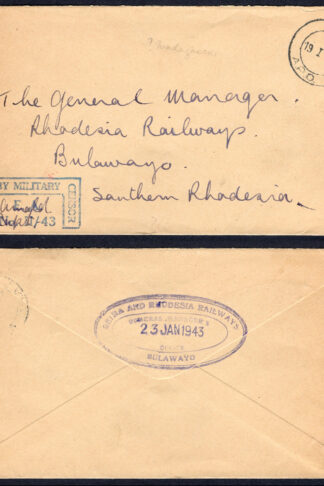 ? Madagascar
19 I
A.P.O.
The General Manager.
Rhodesia Railways.
Bulawayo.
Southern Rhodesia.
BY MILITARY
CENSOR
BEIRA AND RHODESIA RAILWAYS
GENERAL MANAGER'S
23 JAN 1943
OFFICE
BULAWAYO